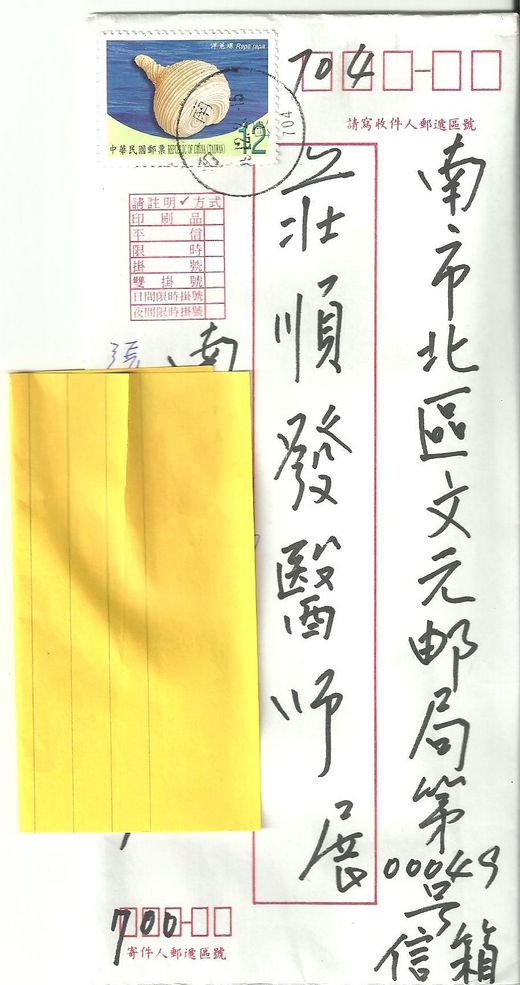 洋蔥螺 Rapa rapa
12
中華民國郵票 REPUBLIC OF CHINA (TAIWAN)
704
704
請寫收件人郵遞區號
南市北區文元邮局第
00049
号
信箱
莊順發醫师
展
請註明✓方式
印刷品
平信
限時
掛號
雙掛號
日間限時掛號
夜間限時掛號
張
南
700
寄件人郵遞區號